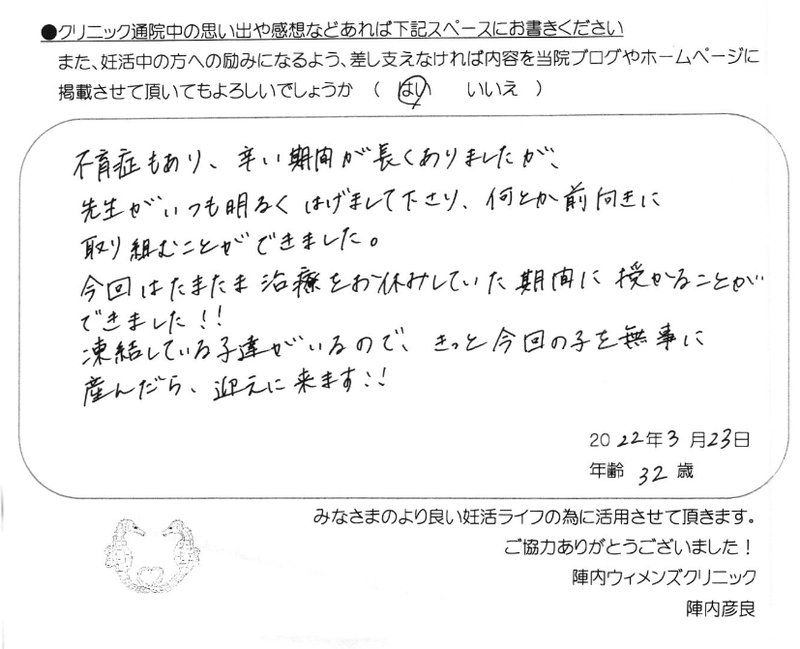 ●クリニック通院中の思い出や感想などあれば下記スペースにお書きください
また、妊活中の方への励みになるよう、差し支えなければ内容を当院ブログやホームページに
掲載させて頂いてもよろしいでしょうか （ はい いいえ ）
不育症もあり、辛い期間が長くありましたが、
先生がいつも明るくはげまして下さり、何とか前向きに
取り組むことができました。
今回はたまたま治療をお休みしていた期間に授かることが
できました!!
凍結している子達がいるので、きっと今回の子を無事に
産んだら、迎えに来ます!!
2022年3月23日
年齢 32 歳
みなさまのより良い妊活ライフの為に活用させて頂きます。
ご協力ありがとうございました！
陣内ウィメンズクリニック
陣内彦良